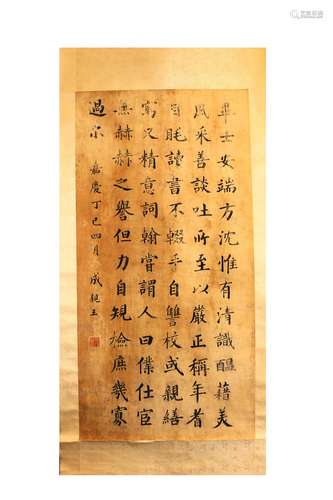 畢士安端方沈惟有清識醞藉美
風采善談吐所至以嚴正稱年耆
目眊讀書不輟手自讐校或親繕
寫又精意詞翰嘗謂人曰僕仕宦
無赫赫之譽但力自規檢庶幾寡
過尔 嘉慶丁巳四月 成親王